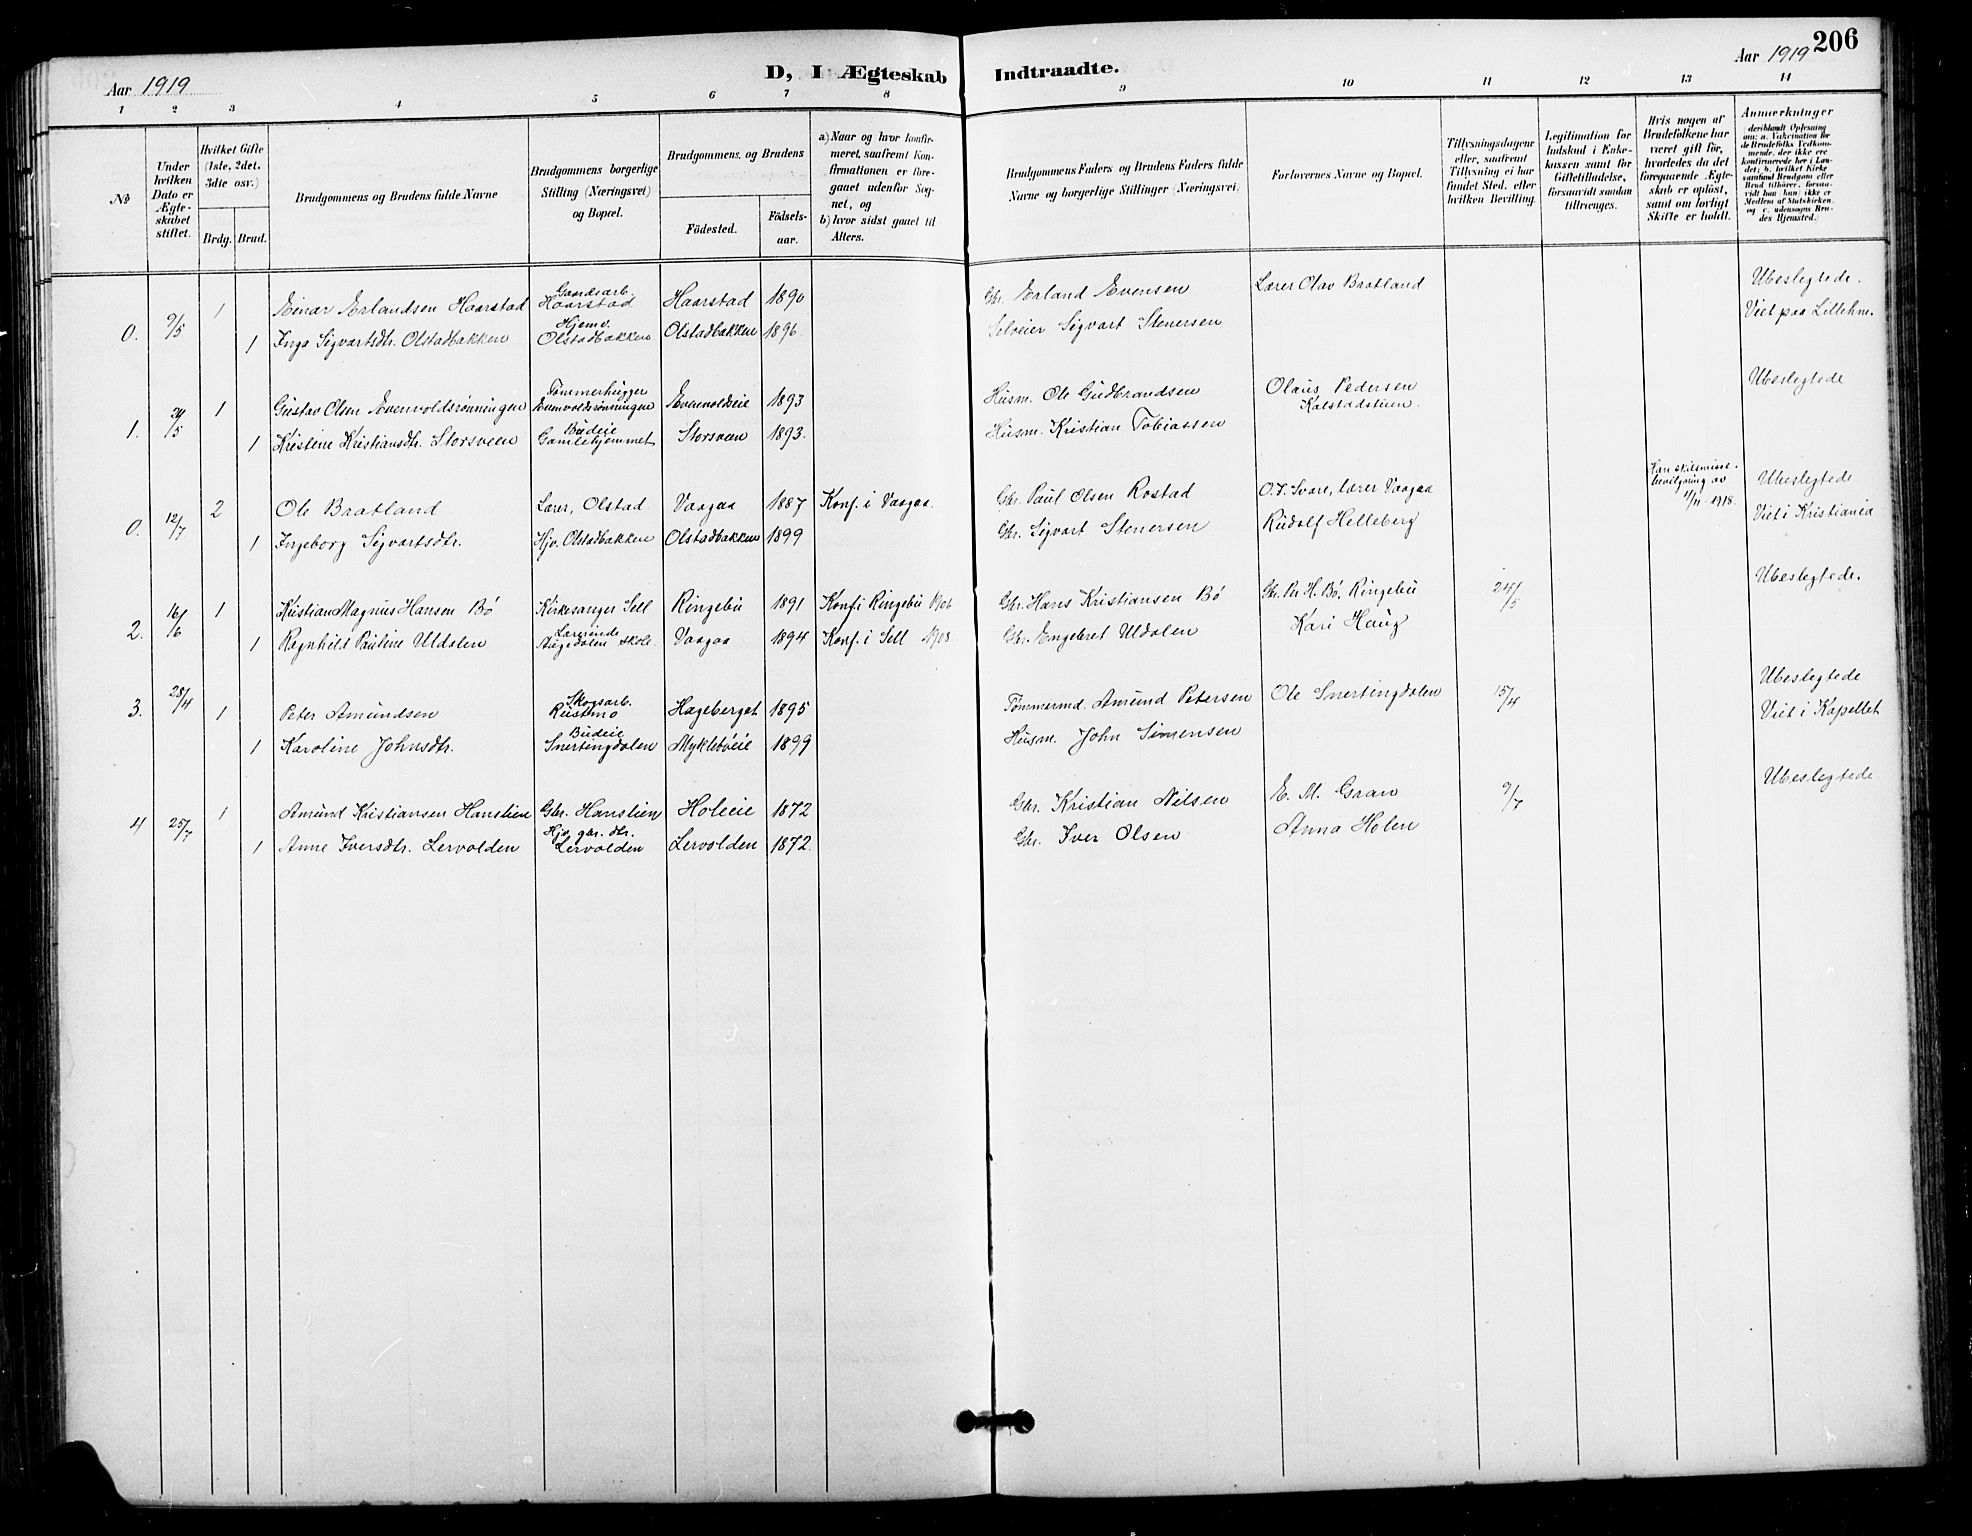 206
Aar 1919
D, I Ægteskab Indtraadte.
Aar 1919
1 2 3 4 5 6 7 8 9 10 11 12 13 14
No
Under hvilken Dato er Ægteskabet stiftet.
Hvilket Gifte (1ste, 2det. 3die osv.)
Brdg. Brud.
Brudgommens og Brudens fulde Navne
Brudgommens borgerlige Stilling (Næringsvei) og Bopæl.
Brudgommens og Brudens
Födested.
Födselsaar.
a) Naar og hvor konfirmeret, saafremt Konfirmationen er foregaaet udenfor Sognet, og
b) hvor sidst gaaet til Alters.
Brudgommens Faders og Brudens Faders fulde Navne og borgerlige Stillinger (Næringsvei).
Forlovernes Navne og Bopæl.
Tillysningsdagene eller, saafremt Tillysning ei har fundet Sted, efter hvilken Bevilling.
Legitimation for Indskud i Enkekassen samt for Giftetilladelse, forsaavidt saadan tiltrænges.
Hvis nogen af Brudefolkene har været gift før, hvorledes da det foregaaende Ægteskab er oplöst, samt om lovligt Skifte er holdt.
Anmerkninger
deriblandt Oplysning om: a. Vakcination for de Brudefolks Vedkommende, der ikke ere konfirmerede her i Landet; b. hvilket Kirkesamfund Brudgom eller Brud tilhører, forsaavidt han (hun) ikke er Medlem af Statskirken og c. udensogns Brudes Hjemsted.)
0. 9/5 1 Einar Erlandsen Haarstad Gaardsarb. Haarstad Haarstad 1890 Gbr. Erland Evensen Lærer Olav Bratland Ubeslegtede.
1 Inga Sigvartsdtr. Olstadbakken Hjemv. Olstadbakken Olstadbakken 1896. Selveier Sigvart Stenersen Viet paa Lillehm.
1. 24/5 1 Gustav Olsen Evenvoldsrønningen Tømmerhugger Evenvoldsrønningen Evenvoldseie 1893 Husm. Ole Gudbrandsen Olaus Pedersen Kalstadstuen. Ubeslegtede
1 Kristine Kristiansdtr. Storsveen Budeie Gamlehjemmet Storsveen 1893. Husm. Kristian Tobiassen
0. 12/7 2 Ole Bratland Lærer, Olstad Vaagaa 1887 Konf. i Vaagaa. Gbr. Paul Olsen Rostad O. I. Svare, lærer Vaagaa Har skilsmissebevilgning av 11/11 1918. Ubeslegtede
1 Ingeborg Sigvartsdtr. Hjv. Olstadbakken Olstadbakken 1899 Gbr. Sigvart Stenersen Rudolf Helleberg Viet i Kristiania
2. 16/6 1 Kristian Magnus Hansen Bø Kirkesanger Sell Ringebu 1891 Konf. i Ringebu 1906 Gbr. Hans Kristiansen Bø Gbr. Per H. Bø, Ringebu 24/5 Ubeslegtede.
1 Ragnhild Pauline Uldalen Lærerinde skole Vaagaa 1894 Konf. i Sell 1908. Gbr. Engebret Uldalen Kari Haug
3. 28/4 1 Peter Amundsen Skogsarb. Rustmo Hageberget 1895 Tømmermd. Amund Petersen Ole Snertingdalen 15/4 Ubeslegtede
1 Karoline Johnsdtr. Budeie Snertingdalen Myklebøeie 1899 Husm. John Simensen Viet i Kapellet
4 25/7 1 Amund Kristiansen Hanstien Gbr. Hanstien Holeie 1872 Gbr. Kristian Nilsen E. M. Gran 9/7 Ubeslegtede
1 Anne Iversdtr. Lervolden Hjv. gbr. dtr. Lervolden Lervolden 1872. Gbr. Iver Olsen Anna Holen